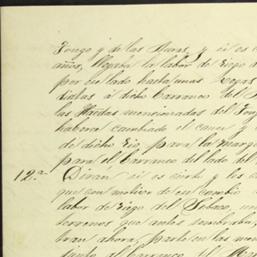 Tongo y de las Heras, y si es c
años, llegaba la labor de riego d
por ese lado hasta unas
dichas á dicho Barranco del
las Hardas mencionadas del Ton
habria cambiado el cauce y
de dicho Rio, para la marg
para el barranco del lado del
12.a Diran si es cierto y les co
que con motivo de ese cambio
labor de riego del
terrenos que antes sembraba
bran ahora, parte en las men
tanto al barranco